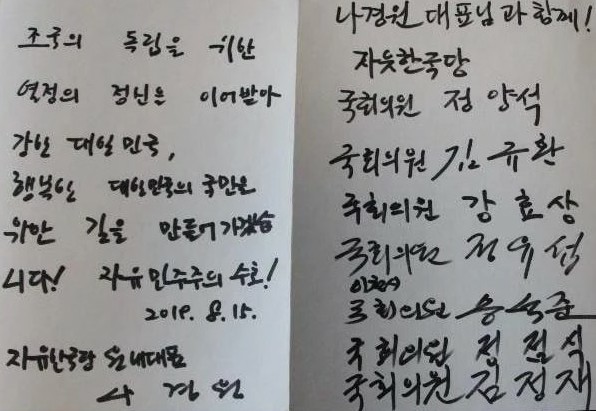 조국의 독립을 위한
열정의 정신을 이어받아
강한 대한민국,
행복한 대한민국의 국민을
위한 길을 만들어가겠습
니다! 자유 민주주의 수호!
2019. 8. 15.
자유한국당 원내대표
나 경 원
나경원 대표님과 함께!
자유한국당
국회의원 정 양석
국회의원 김 규 환
국회의원 강 효 상
국회의원 정 유 섭
국회의원 송 석준
국회의원 정 점 식
국회의원 김 정 재